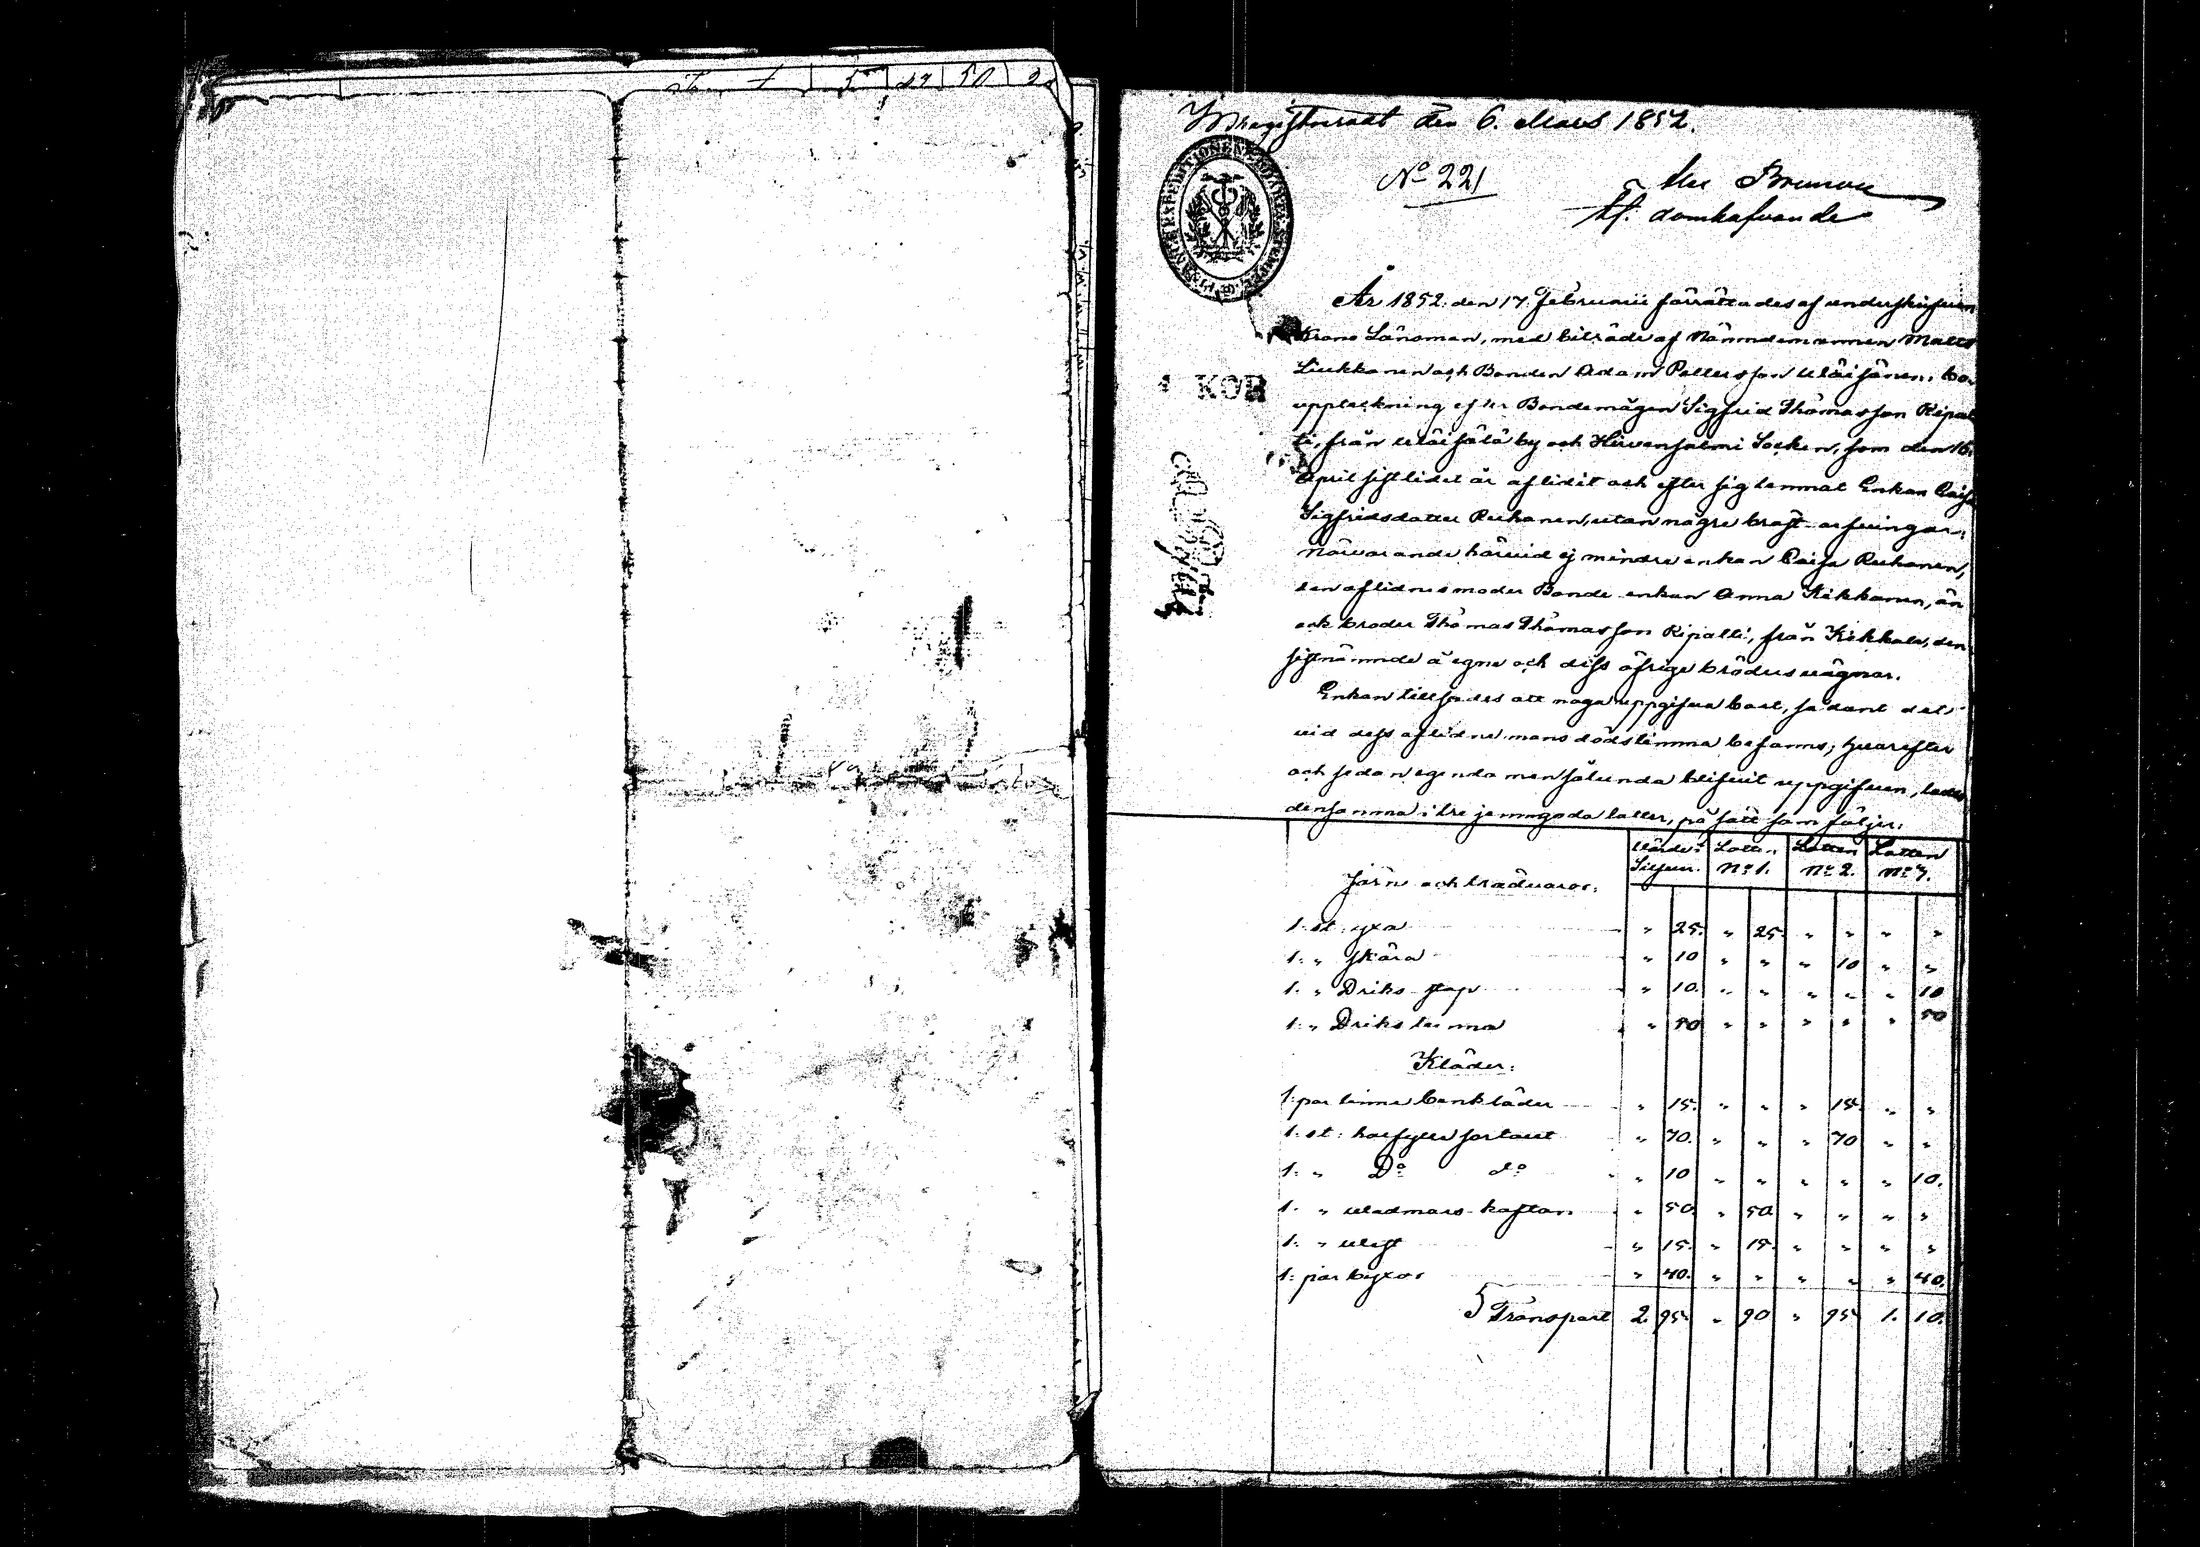 Inregistreradt den 6. Mars 1852.
No 221
Alex Brunou
tf. domhafvande
FINANCE EXPEDITIONENS
KOP
År 1852. den 17. Februarii förrättades af underskrifven
Krono Länsman, med biträde af Nämndemannen Matts
Liukkonen och Bonden Adam Pettersson Wäisänen, bo-
uppteckning efter Bondemågen Sigfrid Thomasson Ripat-
ti, från Wäisälä by och Hirvensalmi Socken, som den 16.
April sistlidet år aflidit och efter sig lemnat Enkan Caisa
Sigfridsdotter Reihonen, utan några bröst-arfvingar;
närvarande härvid ej mindre enkan Caisa Reihonen,
den aflidnes moder Bonde enkan Anna Kekkonen, än
ock broder Thomas Thomasson Ripatti, från Kekkola, den
sistnämnde å egne och dess öfrige bröders vägnar.
Enkan tillsades att noga uppgifva boet, sådant det
vid dess aflidne mans dödstimma befanns; hvarefter
och sedan egendomen sålunda blifvit uppgifven,
densamma i tre jemngoda lotter, på sätt som följer:
Värde i Silfver. Lotten No 1. Lotten No 2. Lotten No 3.
Järn och trädvaror:
1. st. yxa " 25. " 25. " " " "
1. " skära " 10 " " " 10 " "
1. " Driks stop " 10. " " " " " 10
1. " Driks tunna " 50 " " " " " 50
Kläder:
1. par linne benkläder " 15. " " " 15. " "
1. st: halfylle " 70. " " " 70 " "
1. " Do do " 10 " " " " " 10.
1. " Wadmars kaftan " 50 " 50 " " " "
1. " West " 15. " 15. " " " "
1. par byxor " 40. " " " " " 40.
Transport 2. 95. " 90 " 95 1. 10.